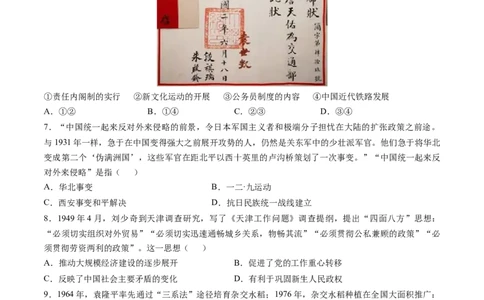 狀
簡字第
詹天佑為交通部
此狀
國二年六月十八日
袁世凱
段祺瑞
朱啟鈐
①责任内阁制的实行 ②新文化运动的开展 ③公务员制度的内容 ④中国近代铁路发展
A．①② B．①④ C．②③ D．③④
7．“中国统一起来反对外来侵略的前景，令日本军国主义者和极端分子担忧在大陆的扩张政策之前途。
与 1931 年一样，急于在中国变得强大之前展开攻势的人，仍然是关东军中的少壮派军官。他们急于将华北
变成第二个‘伪满洲国’，这些军官在距北平以西十英里的卢沟桥策划了一次事变。”“中国统一起来反
对外来侵略”是指（ ）
A．华北事变 B．一二·九运动
C．西安事变和平解决 D．抗日民族统一战线建立
8．1949 年 4 月，刘少奇到天津调查研究，写了《天津工作问题》调查提纲，提出“四面八方”思想：
“必须切实组织对外贸易”“必须切实迅速通畅城乡关系，物畅其流”“必须贯彻公私兼顾的政策”“必
须贯彻劳资两利的政策”。这一思想（ ）
A．推动大规模经济建设的逐步展开 B．促进了党的工作重心转移
C．反映了中国社会主要矛盾的变化 D．有利于巩固新生人民政权
9．1964 年，袁隆平率先通过“三系法”途径培育杂交水稻；1976 年，杂交水稻种植在全国大面积推广；